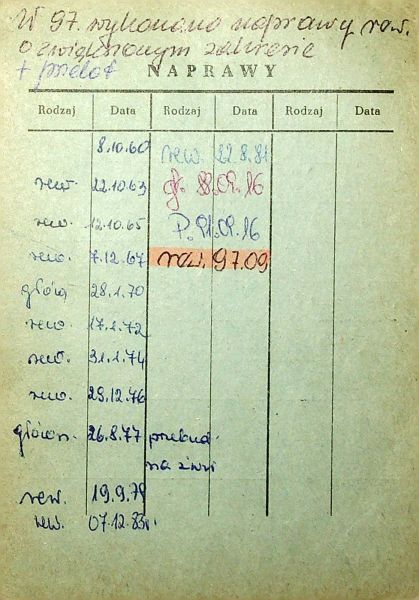 W 97. wykonano naprawy rew.
o zwiększonym zakresie
+ przelot
NAPRAWY
Rodzaj Data Rodzaj Data Rodzaj Data
8.10.60 rew. 22.8.81
rew. 22.10.63 gł. 88.02.16
rew. 12.10.65 P. 91.02.16
rew. 7.12.67 rew. 97.09
główa 28.1.70
rew. 17.1.72
rew. 31.1.74
rew. 29.12.76
główn. 26.8.77 przebud.
na żwir
rew. 19.9.79
rew. 07.12.83r.